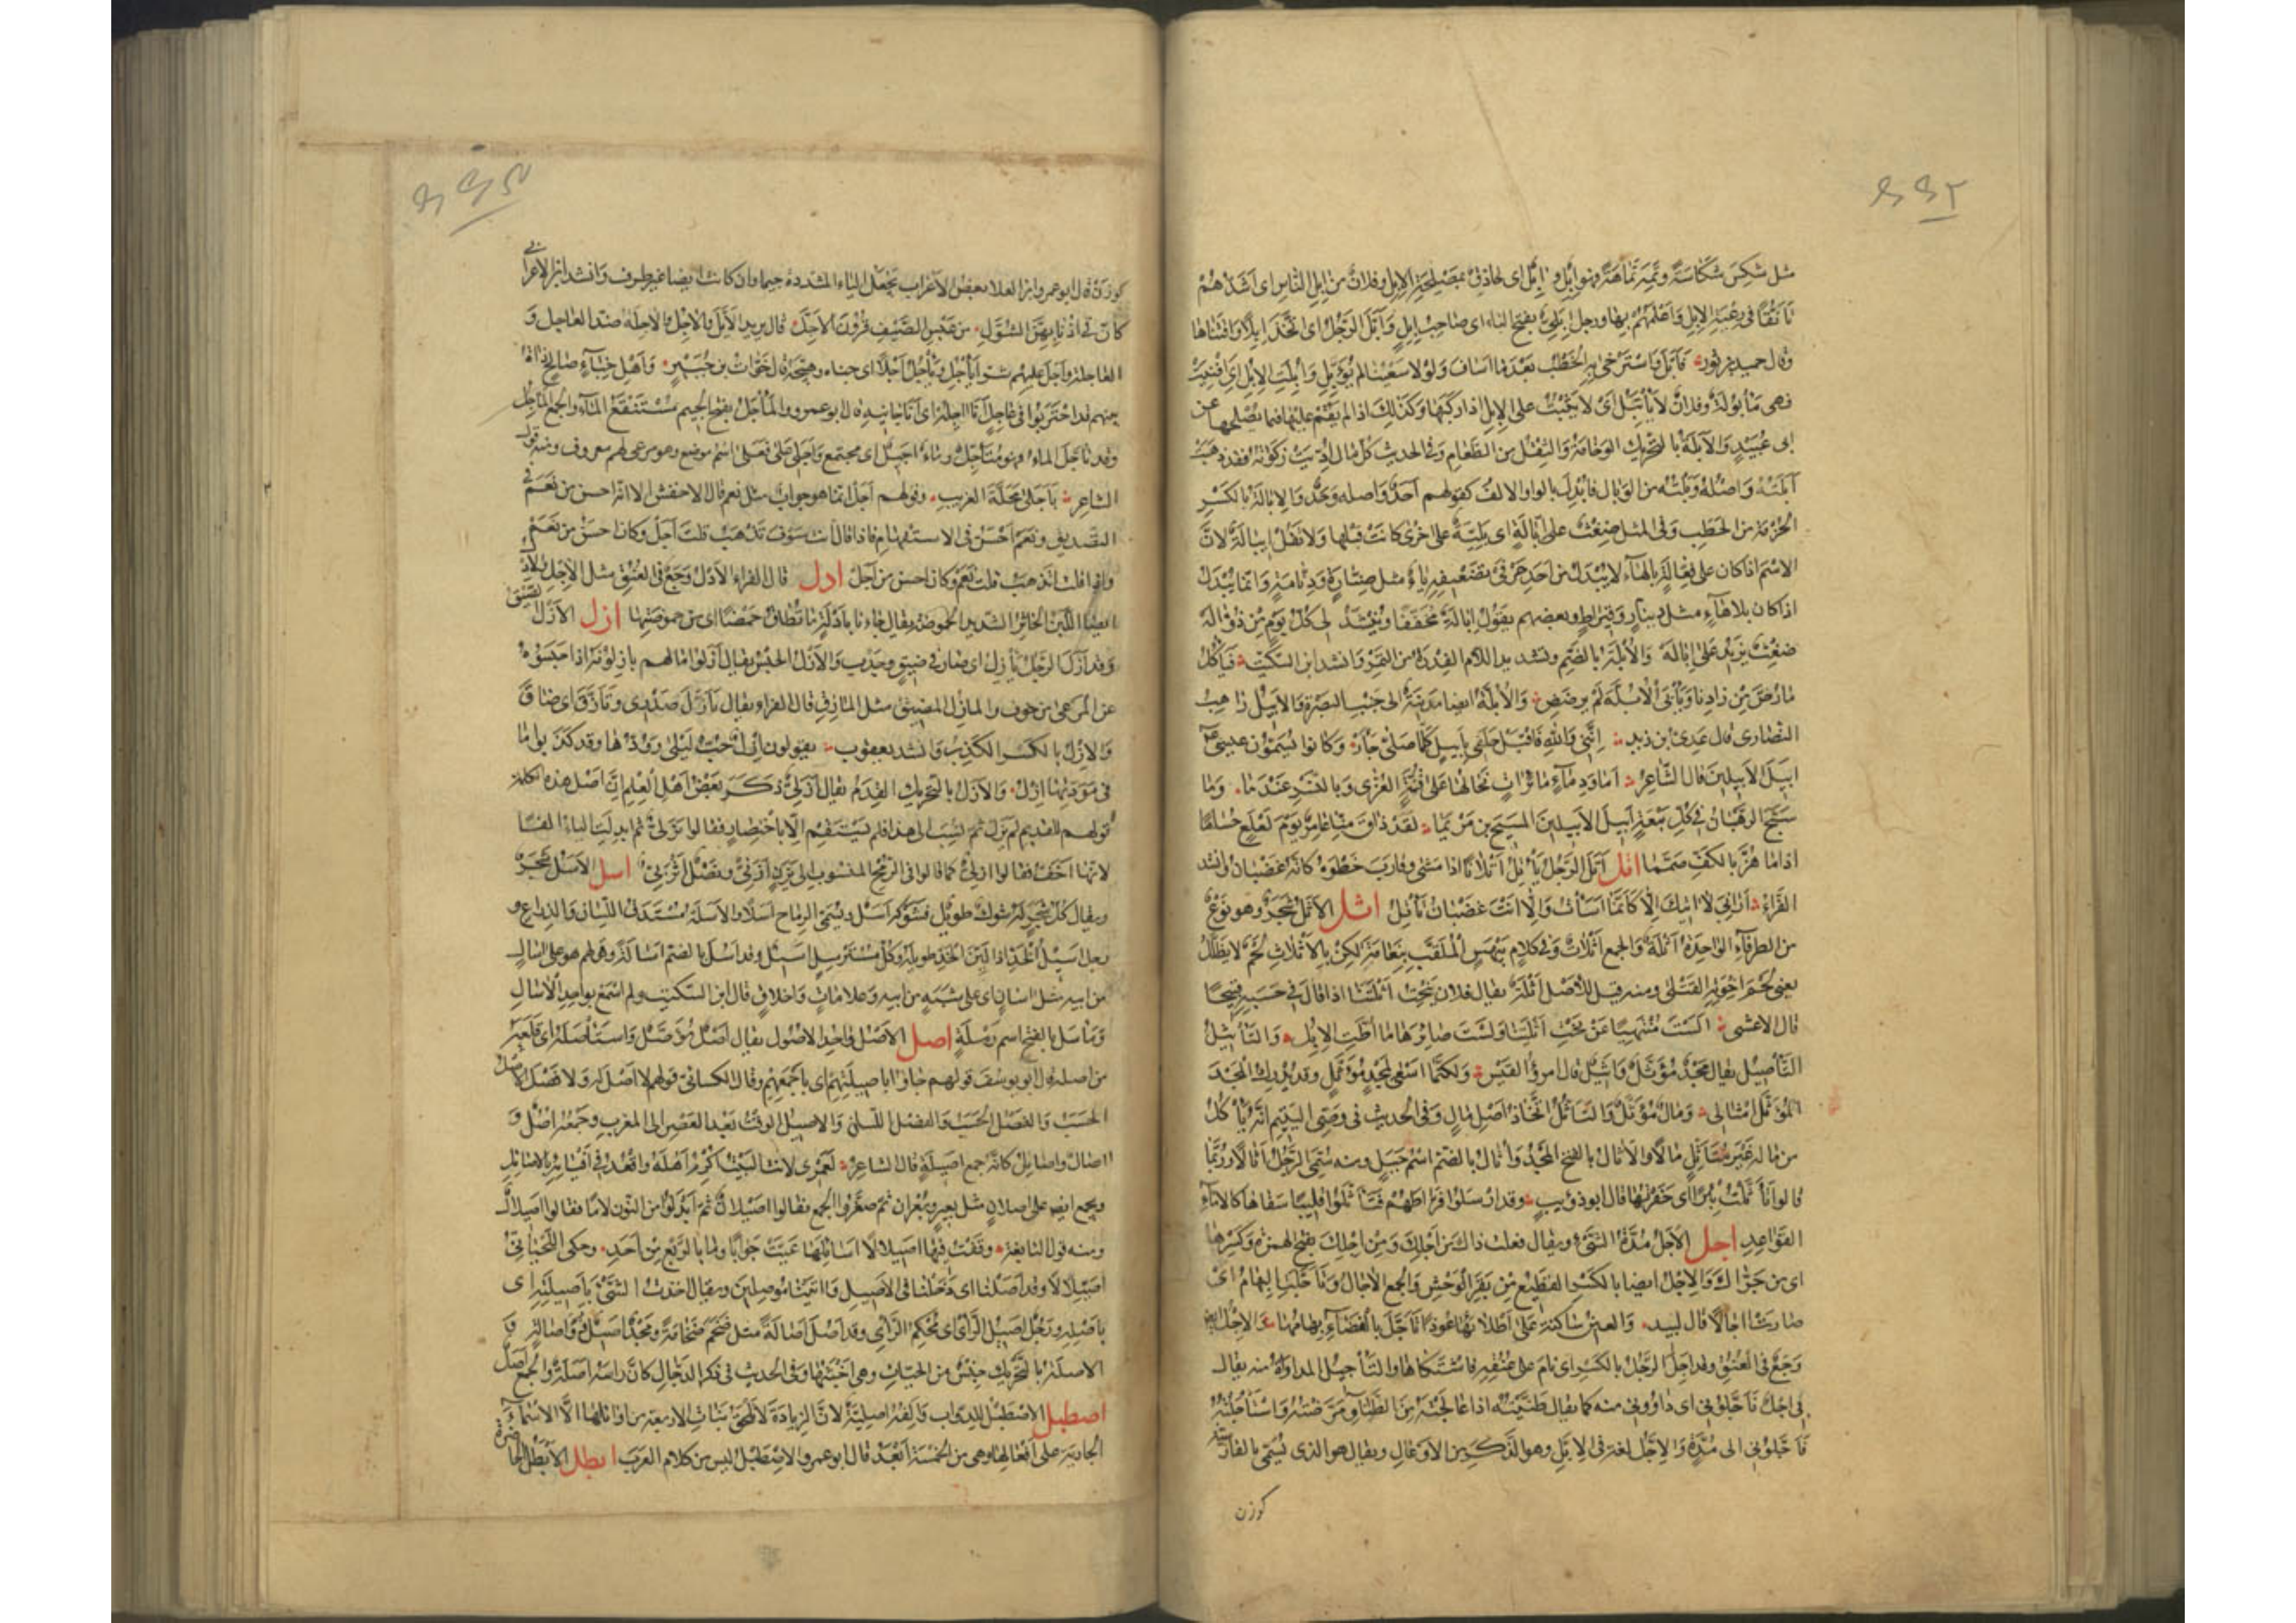 ۶۶۲
مثل شكس شكاسة وتمه تماهة فهو ابل وابل اى حاذق بمصلحة الابل وفلان من آبل الناس اى اشدهم
تأنقا فى رعية الابل واعلمهم بها ورجل ابلى بفتح الباء اى صاحب ابل وابل الرجل اى اتخذ ابلا واقتناها
وقال حميد بن ثور فابل واسترخى به الخطب بعدما اساف ولولا سعينا لم يؤبل وابلت الابل اى اقتنيت
فهى مأبولة وفلان لا يأتبل اى لا يثبت على الابل اذا ركبها وكذلك اذا لم يقم عليها فيما يصلحها عن
ابى عبيد والابلة بالتحريك الوخامة والثقل من الطعام وفى الحديث كل مال اديت زكوته فقد ذهبت
ابلته واصله وبلته من الوبال فابدل بالواو الالف كقولهم احد واصله وحد والابالة بالكسر
الحزمة من الحطب وفى المثل ضغث على ابالة اى بلية على اخرى كانت قبلها ولا تقل ايبالة لان
الاسم اذا كان على فعالة بالهاء لا يبدل من احد حرفى تضعيفه ياء مثل صنارة ودنامة وانما يبدل
اذا كان بلا هاء مثل دينار وقيراط وبعضهم يقول ابالة مخففا وينشد لى كل يوم من ذؤاله
ضغث يزيد على اباله والابلة بالضم وتشديد اللام الفدرة من التمر وانشد ابن السكيت فياكل
ما رض من زادنا ويأبى الابلة لم ترضض والابلة ايضا مدينة الى جنب البصرة والابيل راهب
النصارى قال عدى بن زيد اننى والله فاقبل حلفى بابيل كلما صلى جأر وكانوا يسمون عيسى عم
ابيل الابيلين قال الشاعر اما ودماء مائرات تخالها على قنة العزى وبالنسر عندما وما
سبح الرهبان فى كل بيعة ابيل الابيلين المسيح بن مريما لقد ذاق منا عامر يوم لعلع حساما
اذا ما هز بالكف صمما اتل اتل الرجل يأتل اتلانا اذا مشى وقارب خطوه كانه غضبان وانشد
الفراء ارانى لا آتيك الا كانما اسأت والا انت غضبان تأتل اثل الاثل شجر وهو نوع
من الطرفاء الواحدة اثلة والجمع اثلاث وفى كلام بيهس الملقب بنعامة لكن بالاثلاث لحم لا يظلل
يعنى لحم اخوته القتلى ومنه قيل للاصل اثلة يقال فلان ينحت اثلتنا اذا قال فى حسبه قبيحا
قال الاعشى الست منتهيا عن نحت اثلتنا ولست ضائرها ما اطت الابل والتأثيل
التأصيل يقال مجد مؤثل واثيل قال امرؤ القيس ولكنما اسعى لمجد مؤثل وقد يدرك المجد
المؤثل امثالى ومال مؤثل والتأثل اتخاذ اصل مال وفى الحديث فى وصى اليتيم انه يأكل
من ماله غير متأثل مالا والاثال بالفتح المجد واثال بالضم اسم جبل ومنه سمى الرجل اثالا وربما
قالوا تأثلت بئرا اى حفرتها قال ابو ذؤيب وقد ارسلوا فراطهم فتأثلوا قليبا سفاها كالاماء
القواعد اجل الاجل مدة الشئ ويقال فعلت ذاك من اجلك ومن اجلك بفتح الهمزة وكسرها
اى من جراك والاجل ايضا بالكسر القطيع من بقر الوحش والجمع الآجال وتأجلت البهائم اى
صارت آجالا قال لبيد والعين ساكنة على اطلائها عوذا تأجل بالفضاء بهامها والاجل ايضا
وجع فى العنق وقد اجل الرجل بالكسر اى نام على عنقه فاشتكاها والتأجيل المداواة منه يقال
بى اجل فاجلونى اى داوونى منه كما يقال طنيته اذا عالجته من الطنا ومرضته واستأجلته
فاجلونى الى مدة والاجل لغة فى الايل وهو الذكر من الاوعال ويقال هو الذى يسمى بالفارسية
كوزن
۶۶۳
كوزن قال ابو عمرو ابن العلاء بعض الاعراب يجعل الياء المشددة جيما وان كانت ايضا غير طرف وانشد ابن الاعرابى
كان فى اذنابهن الشول من عبس الصيف قرون الاجل قال يريد الايل والآجل والآجلة ضد العاجل و
العاجلة واجل عليهم شرا يأجل ويأجل اجلا اى جناه وهيجه قال خوات بن جبير واهل خباء صالح ذات
بينهم قد احتربوا فى عاجل انا آجله اى انا جانيه قال ابو عمرو والمأجل بفتح الجيم مستنقع الماء والجمع المآجل
وقد تأجل الماء فهو متأجل وماء اجيل اى مجتمع واجلى على فعلى اسم موضع وهو مرعى لهم معروف ومنه قول
الشاعر باجلى محلة الغريب وقولهم اجل انما هو جواب مثل نعم قال الاخفش الا انه احسن من نعم فى
التصديق ونعم احسن فى الاستفهام فاذا قال انت سوف تذهب قلت اجل وكان احسن من نعم
واذا قلت اتذهب قلت نعم وكان احسن من اجل ادل قال الفراء الادل وجع فى العنق مثل الاجل والادل
ايضا اللبن الخاثر الشديد الحموضة يقال جاءنا بادلة ما تطاق حمضا اى من حموضتها ازل الازل الضيق
وقد ازل الرجل يأزل اى صار فى ضيق وجدب والازل الحبس يقال ازلوا مالهم يأزلونه اذا حبسوه
عن المرعى من خوف والمأزل المضيق مثل المأزق قال الفراء يقال تأزل صدرى وتأزق اى ضاق
والازل بالكسر الكذب وانشد يعقوب يقولون ازل حب ليلى وودها وقد كذبوا ما
فى مودتها ازل والازل بالتحريك القدم يقال ازلى ذكر بعض اهل العلم ان اصل هذه الكلمة
قولهم للقديم لم يزل ثم نسب الى هذا فلم يستقم الا باختصار فقالوا يزلى ثم ابدلت الياء الفا
لانها اخف فقالوا ازلى كما قالوا فى الرمح المنسوب الى ذى يزن ازنى ونصل اثربى اسل الاسل شجر
ويقال كل شجر له شوك طويل فشوكه اسل ويسمى الرماح اسلا والاسلة مستدق اللسان والذراع و
رجل اسيل الخد اذا كان لين الخد طويله وكل مسترسل اسيل وقد اسل بالضم اسالة وقولهم هو على آسال
من ابيه مثل آسان اى على شبه من ابيه وعلامات واخلاق قال ابن السكيت ولم اسمع بواحد الآسال
ومأسل بالفتح اسم رملة اصل الاصل واحد الاصول يقال اصل مؤصل واستأصله اى قلعه
من اصله قال ابو يوسف قولهم جاؤا باصيلتهم اى باجمعهم وقال الكسائى قولهم لا اصل له ولا فصل الاصل
الحسب والفصل اللسان والاصيل الوقت بعد العصر الى المغرب وجمعه اصل و
آصال واصائل كانه جمع اصيلة قال الشاعر لعمرى لانت البيت اكرم اهله واقعد فى افيائه بالاصائل
ويجمع ايضا على اصلان مثل بعير وبعران ثم صغروا الجمع فقالوا اصيلان ثم ابدلوا من النون لاما فقالوا اصيلال
ومنه قول النابغة وقفت فيها اصيلالا اسائلها عيت جوابا وما بالربع من احد وحكى اللحيانى
اصيلالا وقد آصلنا اى دخلنا فى الاصيل واتيتنا موصلين ويقال اخذت الشئ باصيلته اى
باصله ورجل اصيل الرأى اى محكم الرأى وقد اصل اصالة مثل ضخم ضخامة ومجد اصيل ذو اصالة و
الاصلة بالتحريك جنس من الحيات وهى اخبثها وفى الحديث فى ذكر الدجال كان رأسه اصلة والجمع اصل
اصطبل الاصطبل للدواب والفه اصلية لان الزيادة لا تلحق بنات الاربعة من اوائلها الا الاسماء
الجارية على افعالها وهى من الخمسة ابعد قال ابو عمرو الاصطبل ليس من كلام العرب ايطل الايطل الخاصرة